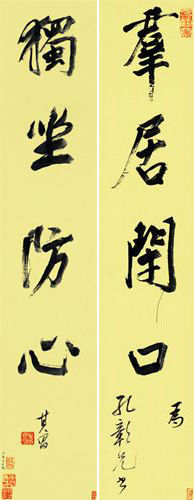 羣居閉口
為
孔彰兄書
獨坐防心
其昌